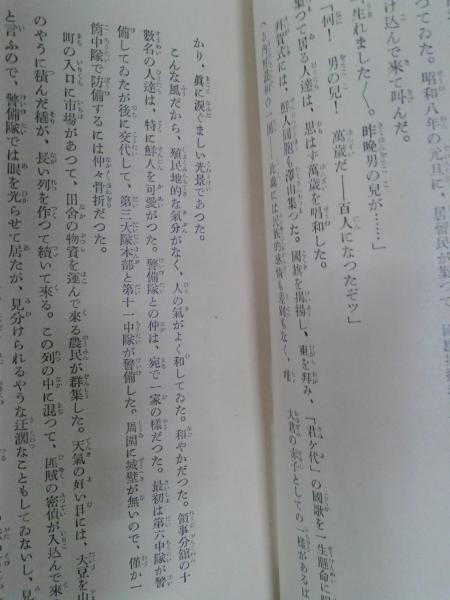 つてゐた。昭和八年の元旦に、居留民が集つて、國
け込んで來て叫んだ。
「生れました〱。昨晩男の兒が……」
「何！　男の兒！　萬歳だ──百人になつたぞッ」
集つて居る人達は、思はず萬歳を唱和した。
拜賀式には、鮮人同胞も澤山集つた。國旗を掲揚し、東を拜み、「君ヶ代」の國歌を一生懸命に唱
大君の赤子としての一樣があるば
かり、眞に涙ぐましい光景であつた。
こんな風だから、殖民地的な氣分がなく、人の氣がよく和してゐた。和やかだつた。領事分舘の十
數名の人達は、特に鮮人を可愛がつた。警備隊との仲は、宛で一家の樣だつた。最初は第六中隊が警
備してゐたが後に交代して、第三大隊本部と第十一中隊が警備した。周圍に城壁が無いので、僅か一
箇中隊で防備するには仲々骨折だつた。
町の入口に市場があつて、田舍の物資を運んで來る農民が群集した。天氣の好い日には、大豆を山
のやうに積んだ橇が、長い列を作つて續いて來る。この列の中に混つて、匪賊の密偵が入込んで來
と言ふので、警備隊では眼を光らせて居たが、見分けられるやうな迂濶なこともしてゐないし、見